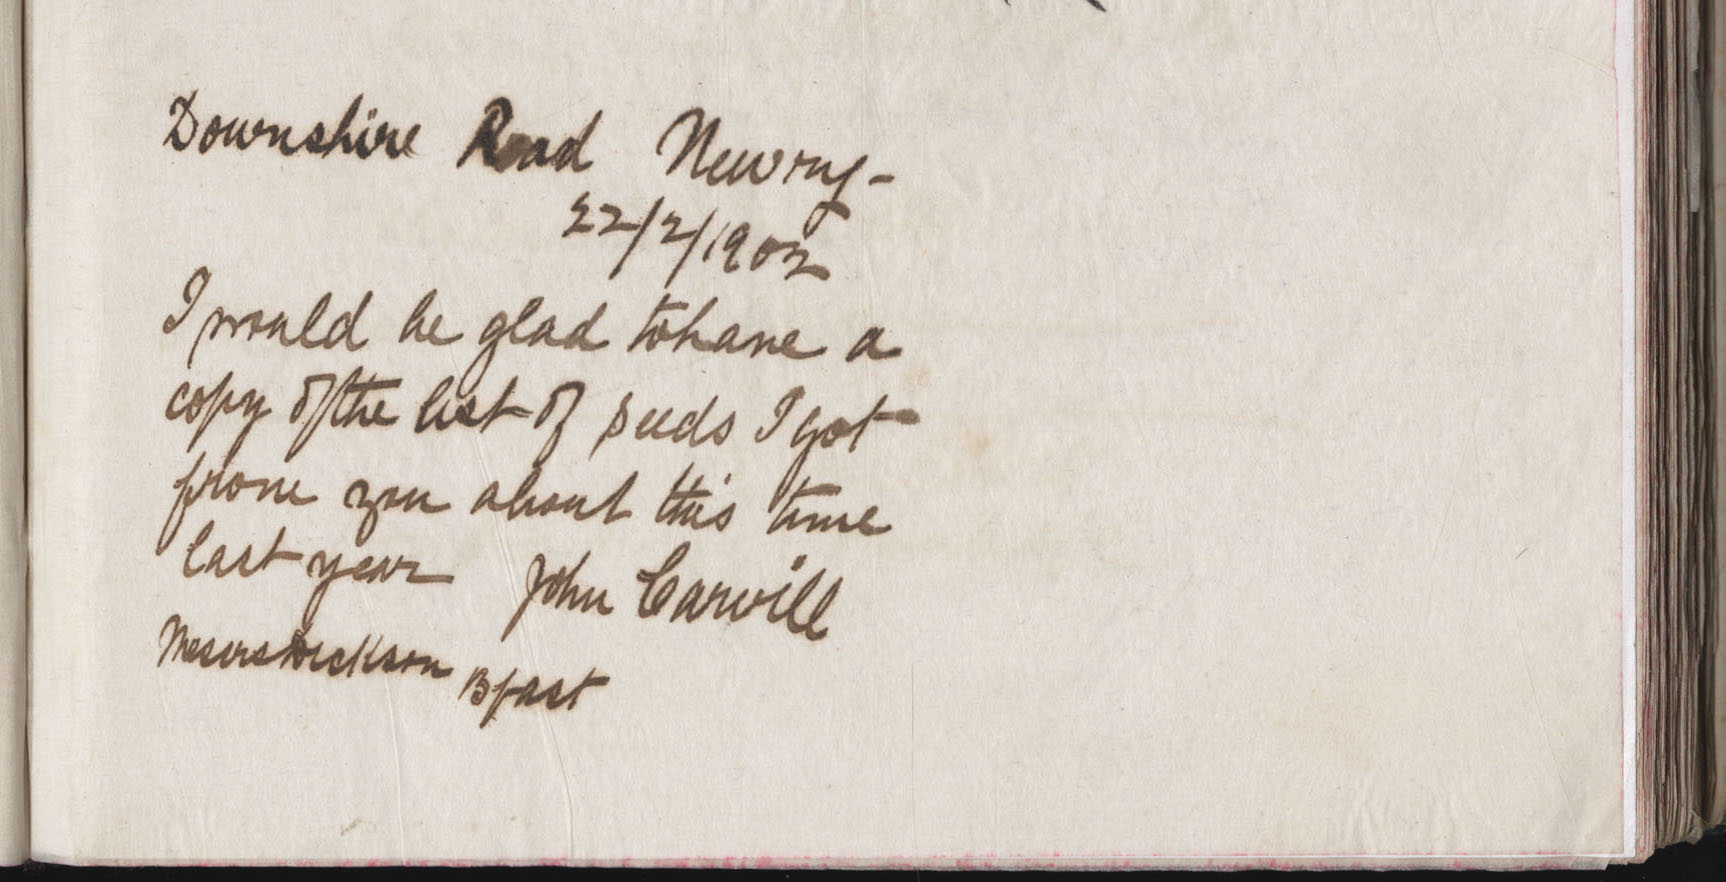 Downshire Road Newry -
22/2/1902
I would be glad to have a
copy of the list of seeds I got
from you about this time
last year John Carvill
Messrs Dickson Bfast